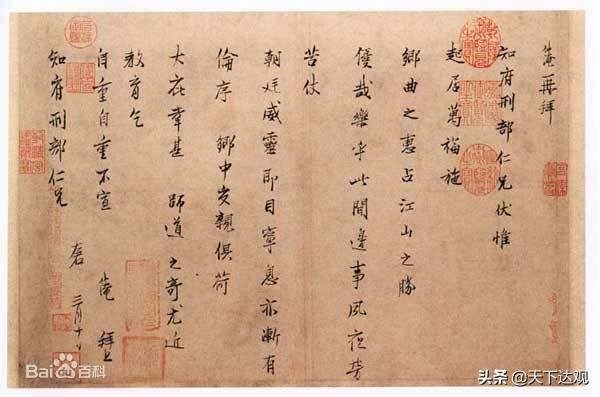 淹再拜
知府刑部仁兄伏惟
起居萬福施
鄉曲之惠占江山之勝
優哉樂乎此間邊事夙夜勞
苦仗
朝廷威靈即目寧息亦漸有
倫序 鄉中交親俱荷
大庇幸甚 師道之奇尤近
教育乞
自重自重不宣 淹 拜上
知府刑部仁兄 三月十日
Bai百科
头条 @天下达观